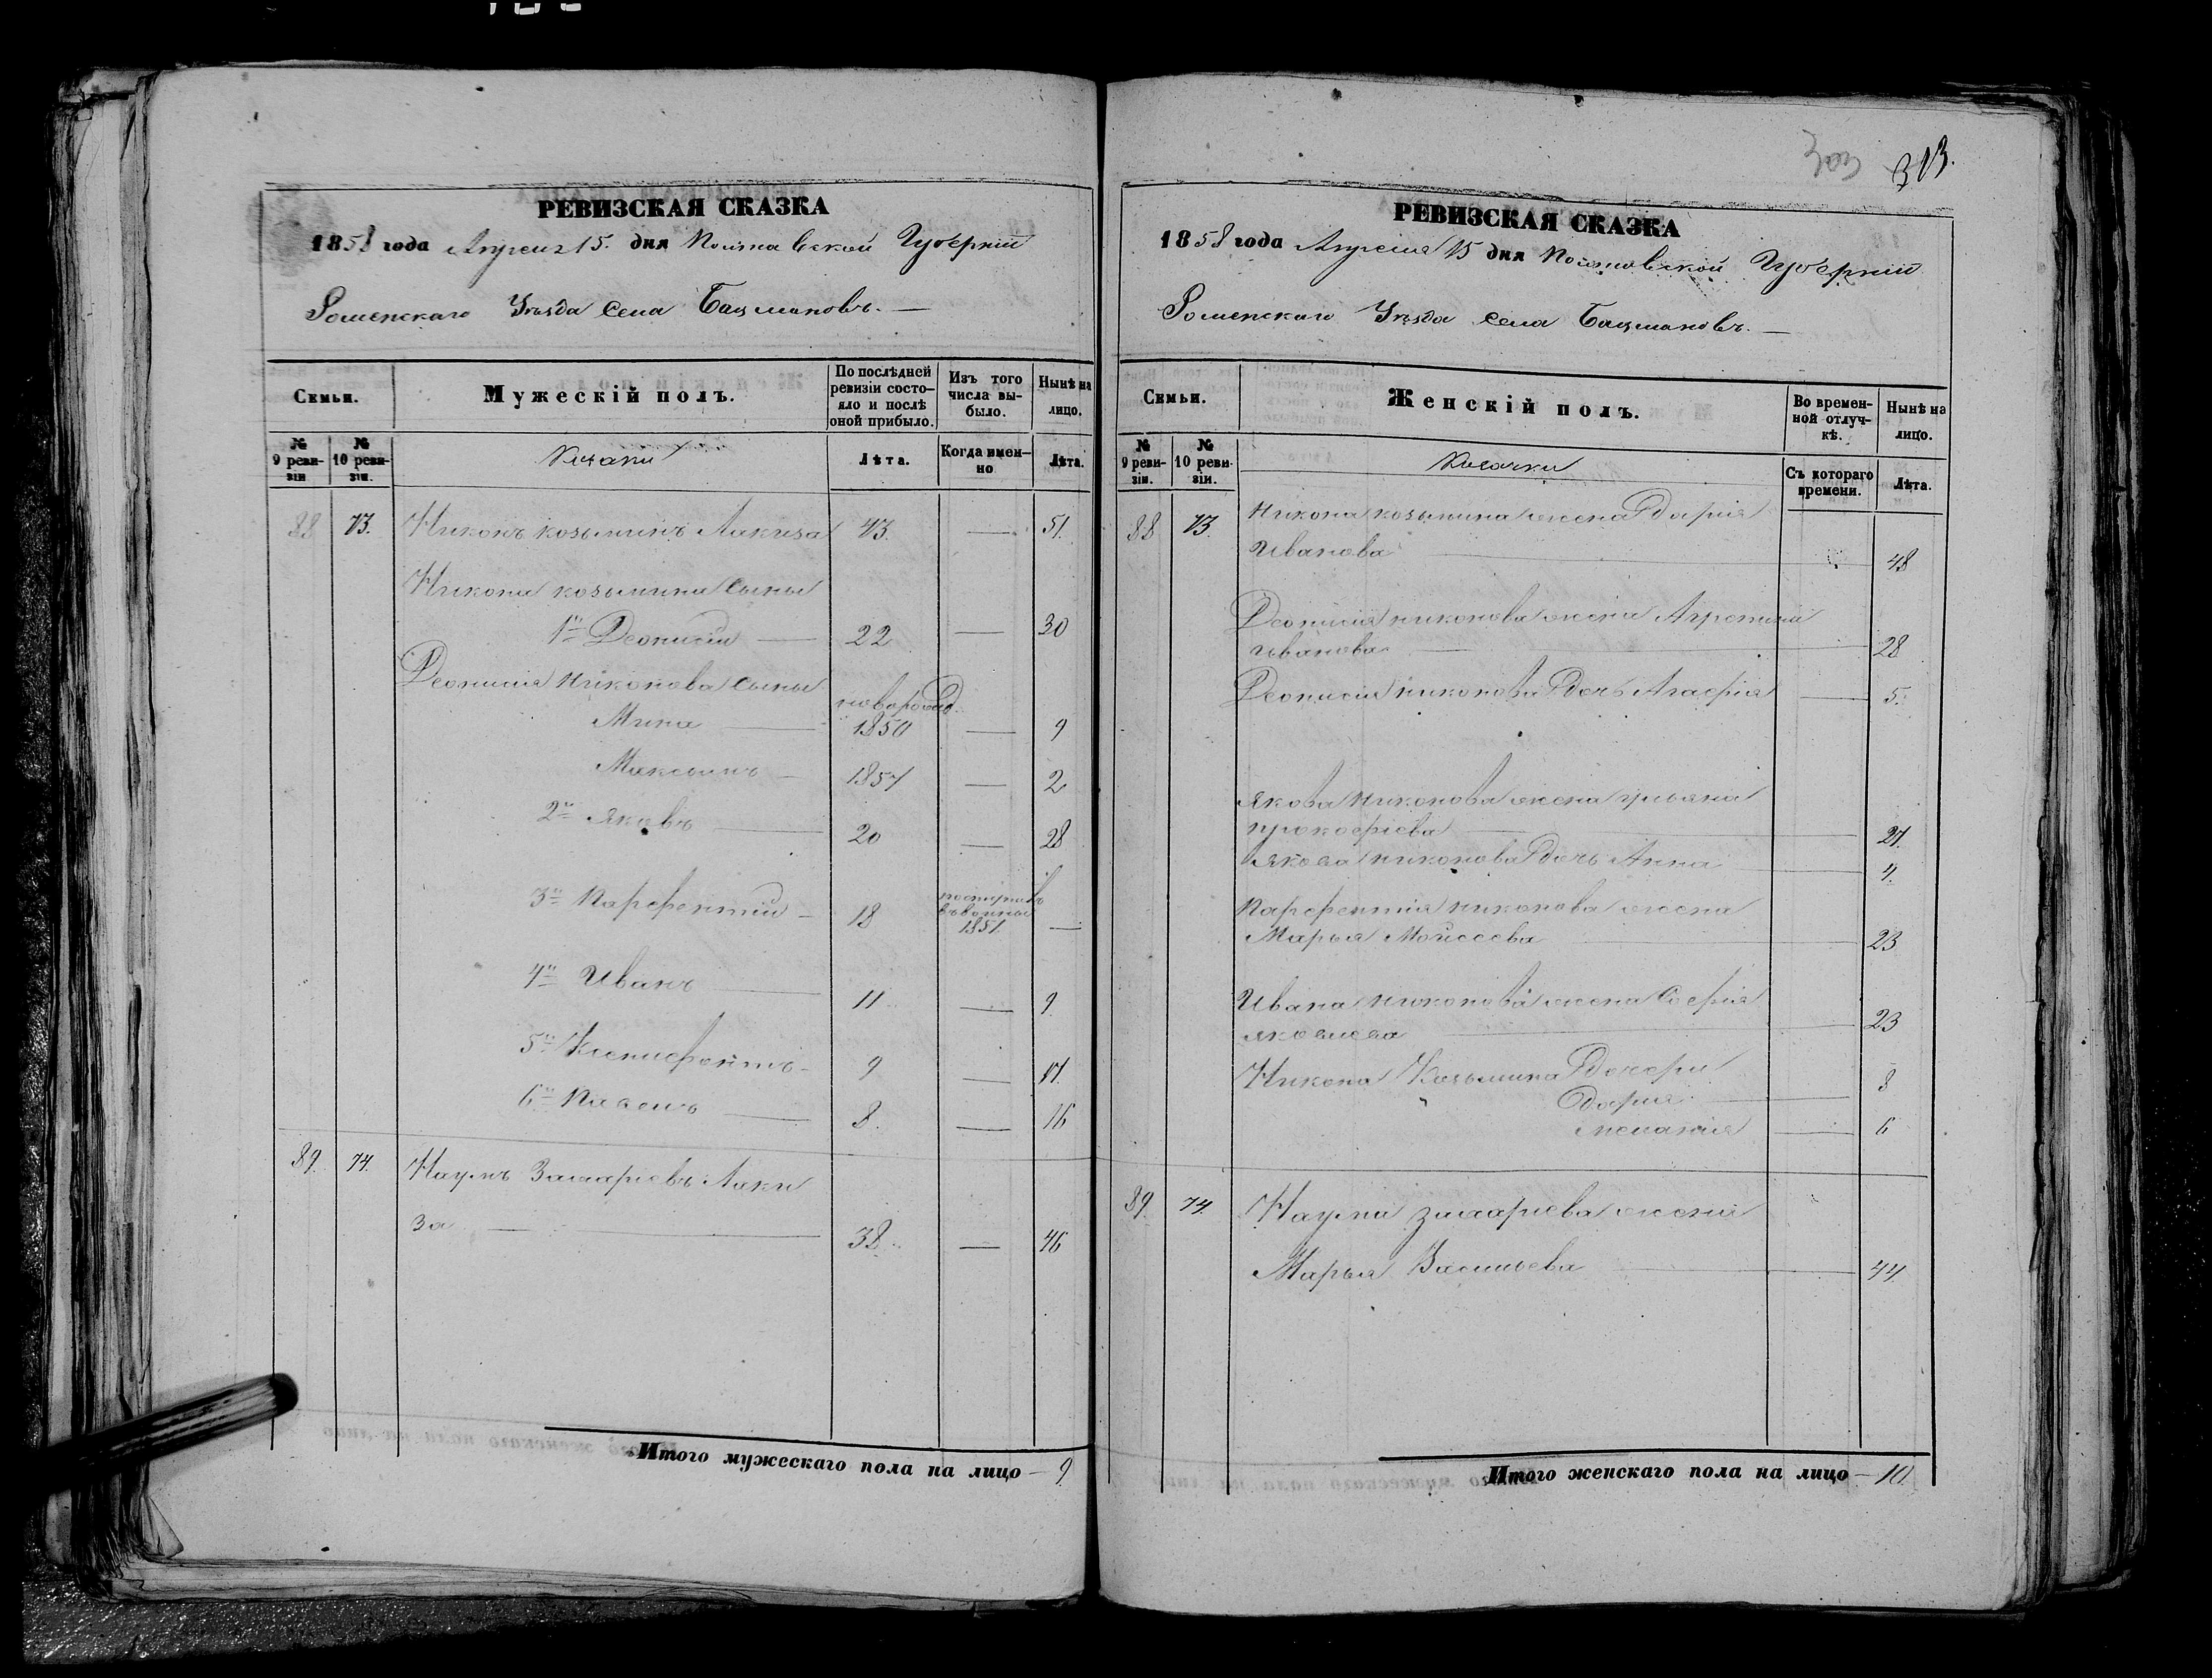 313.
РЕВИЗСКАЯ СКАЗКА
1858 года Апреля 15. дня Полтавской Губернии
Роменскаго Уѣзда села Бацмановъ.
Семьи.
Мужескій полъ.
По послѣдней ревизіи состояло и послѣ оной прибыло.
Изъ того числа выбыло.
Нынѣ на лицо.
№ 9 ревизіи
№ 10 ревизіи.
Козаки
Лѣта.
Когда именно
Лѣта.
88 73. Никонъ козьминъ Лакиза 43. — 51.
Никона козьмина сыны
1й Деонисій — 22 — 30
Деонисія никонова сыны новорожд.
Мина — 1850 — 9
Максимъ — 1857 — 2
2й Яковъ — 20 — 28
3й Парфентій — 18 поступилъ 1851. —
4й Иванъ — 11 — 9
5й Ксенифонтъ — 9 — 17.
6й Павелъ — 8. — 16
89. 74. Наумъ Захаріевъ Лаки
за — 38 — 46
Итого мужескаго пола на лицо — 9
РЕВИЗСКАЯ СКАЗКА
1858 года Апреля 15 дня Полтавской Губернии
Роменскаго Уѣзда села Бацмановъ. —
Семьи.
Женскій полъ.
Во временной отлучкѣ.
Нынѣ на лицо.
№ 9 ревизіи.
№ 10 ревизіи.
Козачки
Съ котораго времени.
Лѣта.
88 73. Никона козьмина жена Дарія
Иванова — 48
Деонисія никонова жена Агрепина
иванова — 28
Деонисія никонова дочь Агафія — 5.
Якова никонова жена ульяна
прокофіева — 27.
якова никонова дочь Анна — 4.
Парфентія никонова жена
Марья Моисеева — 23
Ивана никонова жена Софія
яковлева — 23
Никона Козьмина дочери
Дарія — 8
Меланія — 6
89. 74. Наума захаріева жена
Марья Васильева — 44
Итого женскаго пола на лицо — 10